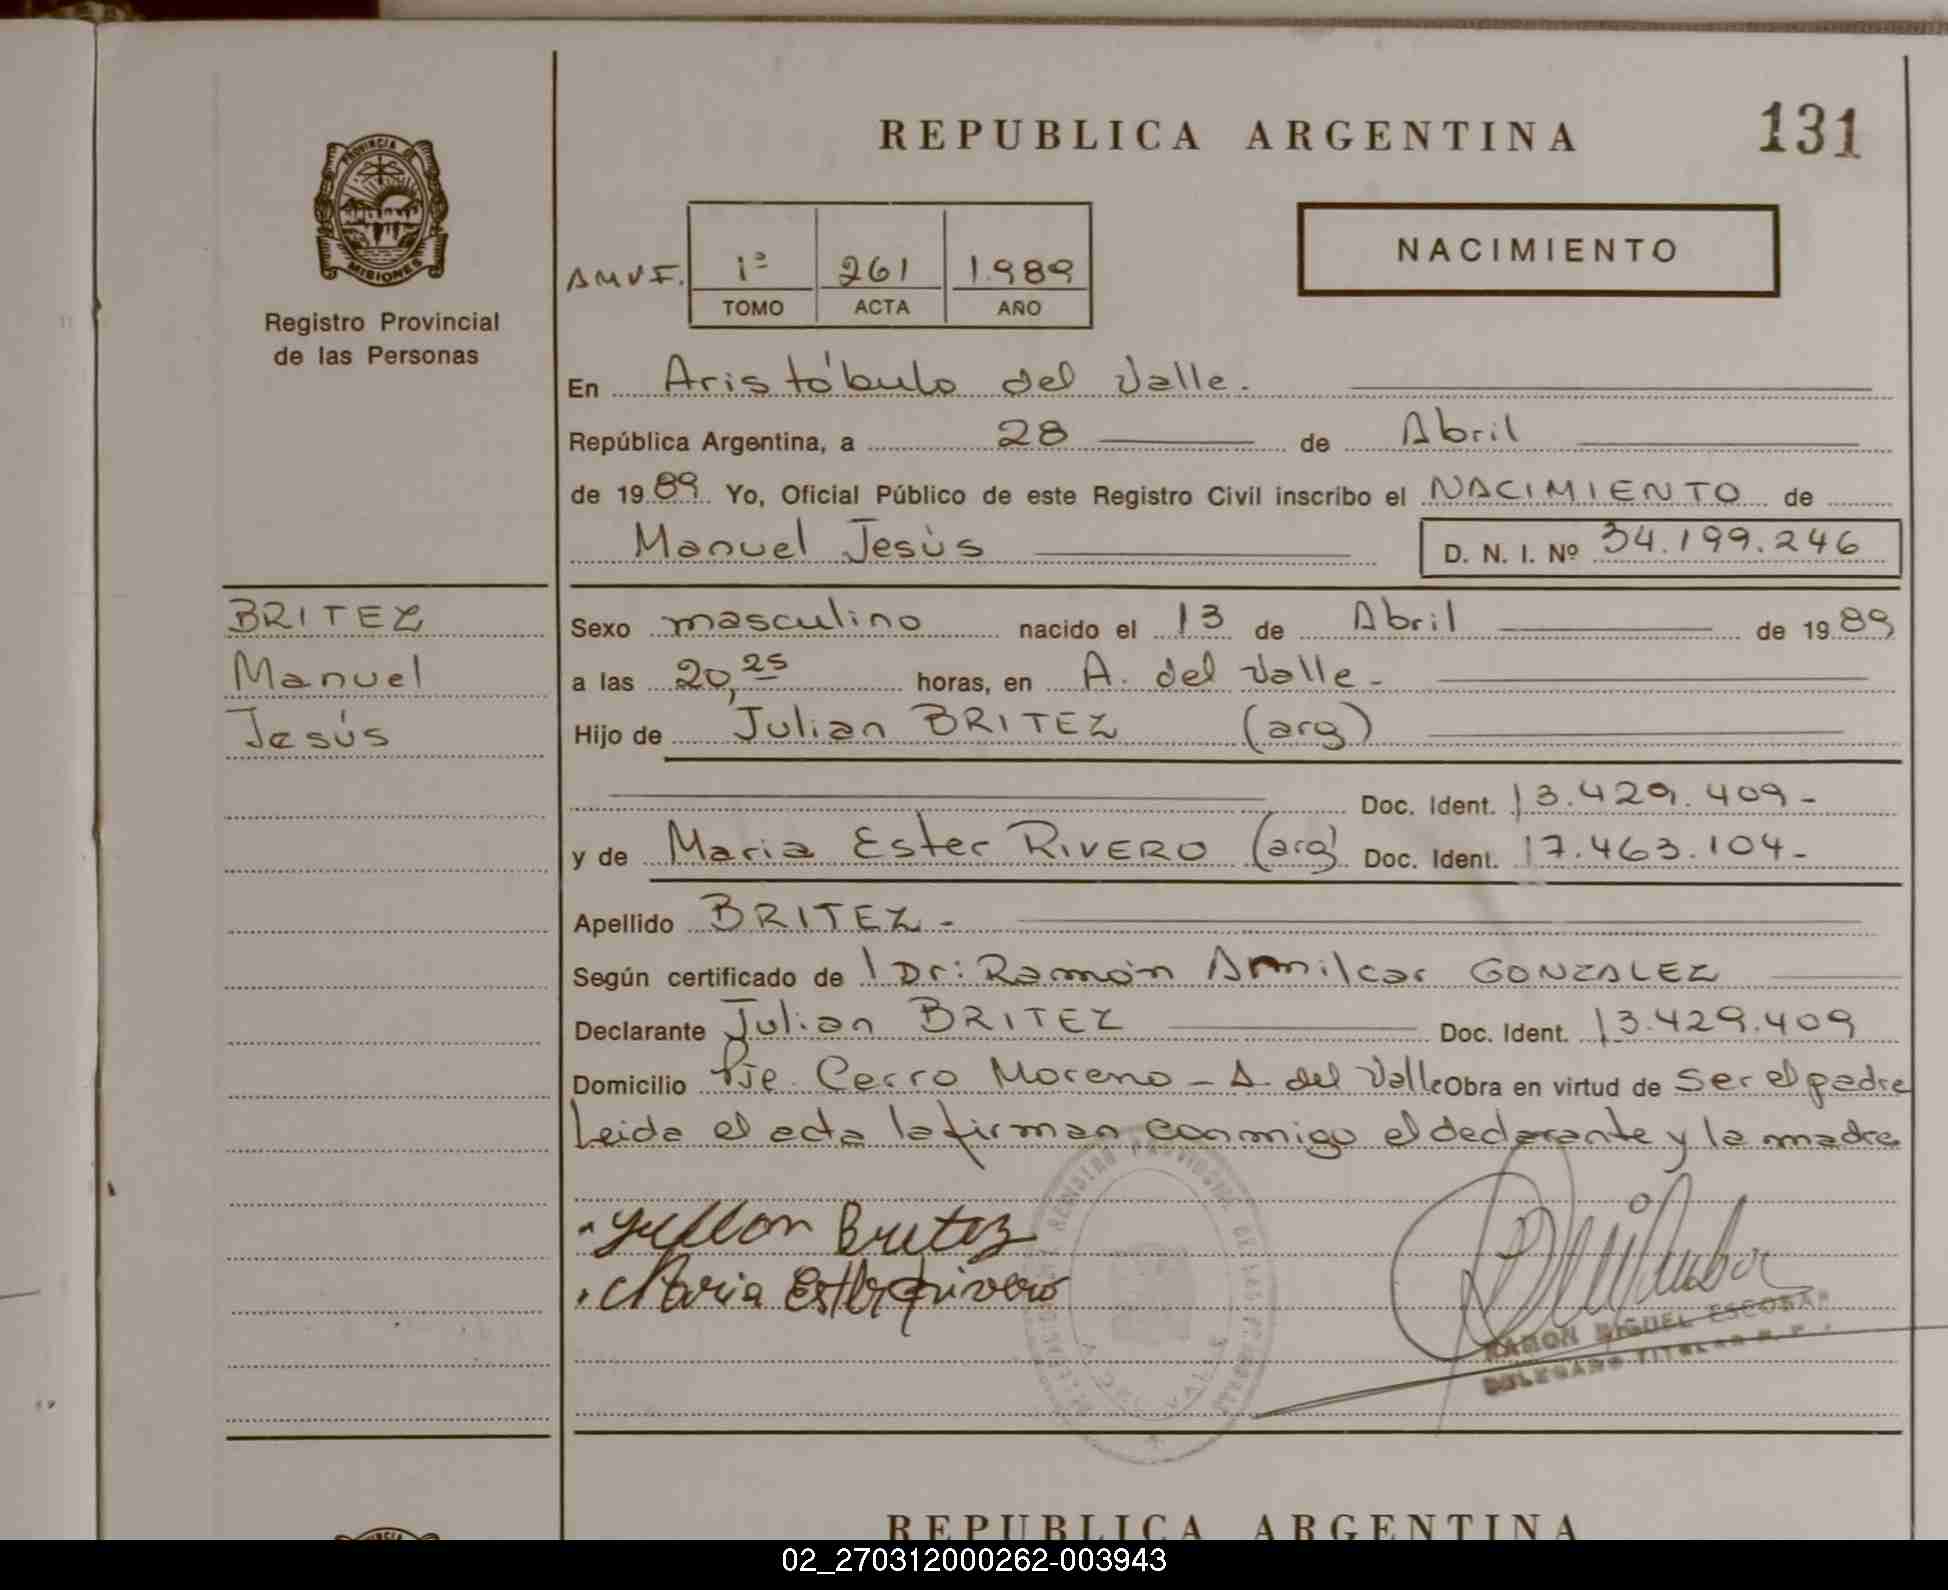 REPUBLICA ARGENTINA
131
PROVINCIA DE
MISIONES
Registro Provincial
de las Personas
AMVF.
1º 261 1.989
TOMO ACTA AÑO
NACIMIENTO
En Aristóbulo del Valle.
República Argentina, a 28 de Abril
de 1989 Yo, Oficial Público de este Registro Civil inscribo el NACIMIENTO de
Manuel Jesús D. N. I. Nº 34.199.246
BRITEZ
Manuel
Jesús
Sexo masculino nacido el 13 de Abril de 1989
a las 20,25 horas, en A. del Valle-
Hijo de Julian BRITEZ (arg)
Doc. Ident. 13.429.409-
y de Maria Ester RIVERO (arg) Doc. Ident. 17.463.104-
Apellido BRITEZ-
Según certificado de Dr: Ramón Amilcar GONZALEZ
Declarante Julian BRITEZ Doc. Ident. 13.429.409
Domicilio Pje. Cerro Moreno - A. del Valle Obra en virtud de ser el padre
Leida el acta la firman conmigo el declarante y la madre
Britez
Maria Ester Rivero
REGISTRO PROVINCIAL DE LAS PERSONAS
A. DEL VALLE
RAMON MIGUEL ESCOBAR
DELEGADO TITULAR
REPUBLICA ARGENTINA
02_270312000262-003943